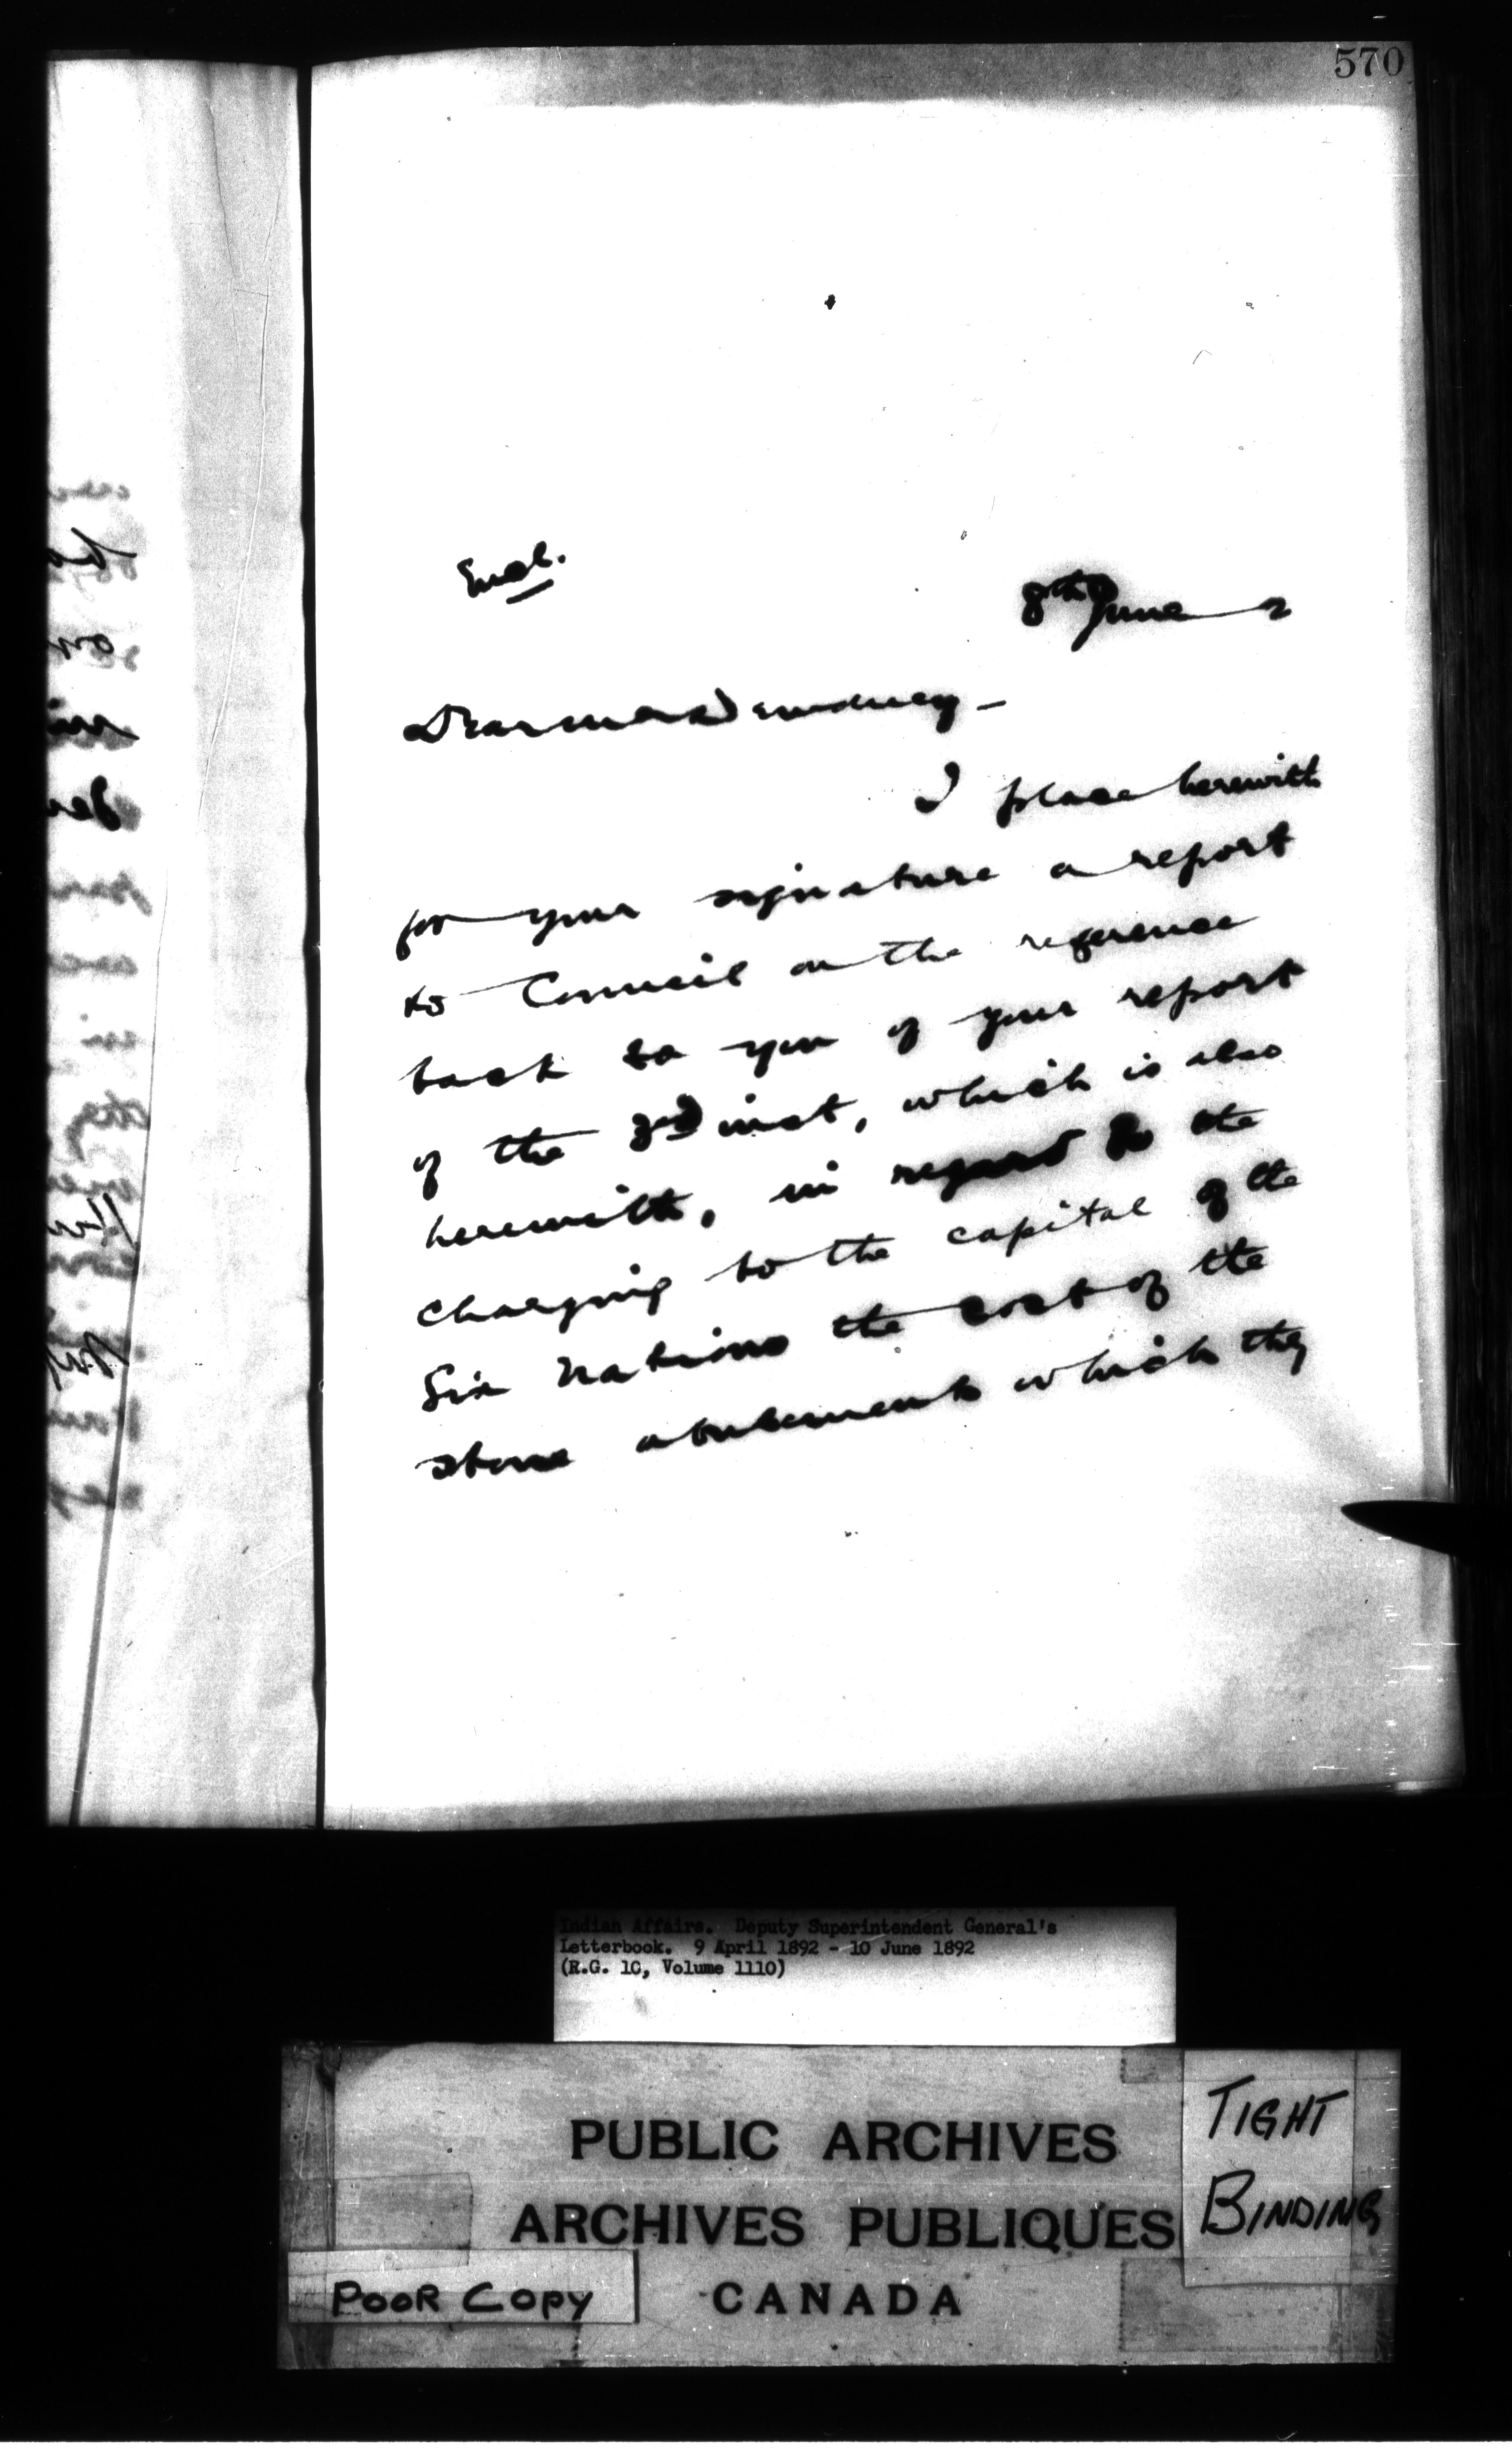 570
Encl.
8th June 2
Dear Mr Dewdney -
I place herewith
for your signature a report
to Council on the reference
back to you of your report
of the 3rd inst, which is also
herewith, in regard to the
charging to the capital of the
Six Nations the cost of the
stone abutments which they
Indian Affairs. Deputy Superintendent General's
Letterbook. 9 April 1892 - 10 June 1892
(R.G. 10, Volume 1110)
PUBLIC ARCHIVES
ARCHIVES PUBLIQUES
CANADA
TIGHT
BINDING
POOR COPY